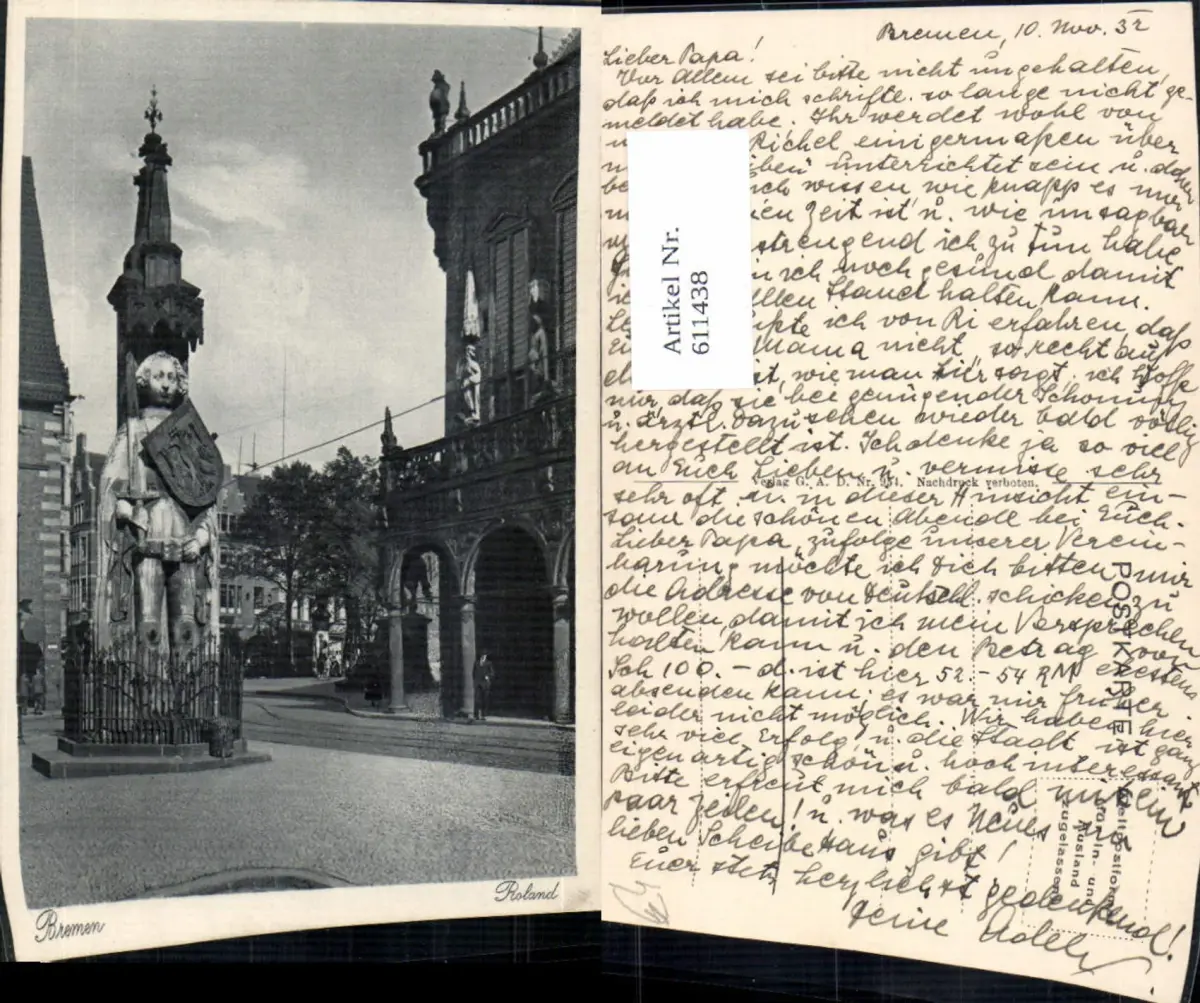 Bremen
Roland
Bremen, 10. Nov. 32
Lieber Papa!
Vor Allem sei bitte nicht ungehalten,
daß ich mich schriftl. so lange nicht ge-
meldet habe. Ihr werdet wohl von
Richel einigermaßen über
unterrichtet sein u. daher
ich wissen wie knapp es mir
Zeit ist u. wie unsagbar
strengend ich zu tun habe
ich noch gesund damit
Stand halten kann.
ich von Ri erfahren, daß
Mama nicht so recht auf
wie man hier sagt. ich hoffe
nur, daß sie bei genügender Schonung
u. ärztl. dazusehen wieder bald völlig
hergestellt ist. Ich denke ja so viel
an Euch Lieben u. vermisse sehr
sehr oft in dieser Hinsicht ein-
same die schönen Abende bei Euch.
Lieber Papa, zufolge unserer Verein-
barung möchte ich Dich bitten mir
die Adresse von schicken zu
wollen, damit ich mein Versprechen
halten kann u. den Betrag von
Sch 100.- d. ist hier 52.-54 RM ehestens
absenden kann; es war mir früher
leider nicht möglich. Wir haben hier
sehr viel Erfolg u. die Stadt ist ganz
eigenartig schön u. hochinteressant
Bitte erfreut mich bald mit ein
paar Zeilen! u. was es Neues im
lieben Scheibe Haus gibt!
Euer stets herzlichst gedenkend!
Deine
Artikel Nr.
611438
Verlag G. A. D. Nr. Nachdruck verboten.
POSTKARTE
Weltpostform
Ausland
zugelassen